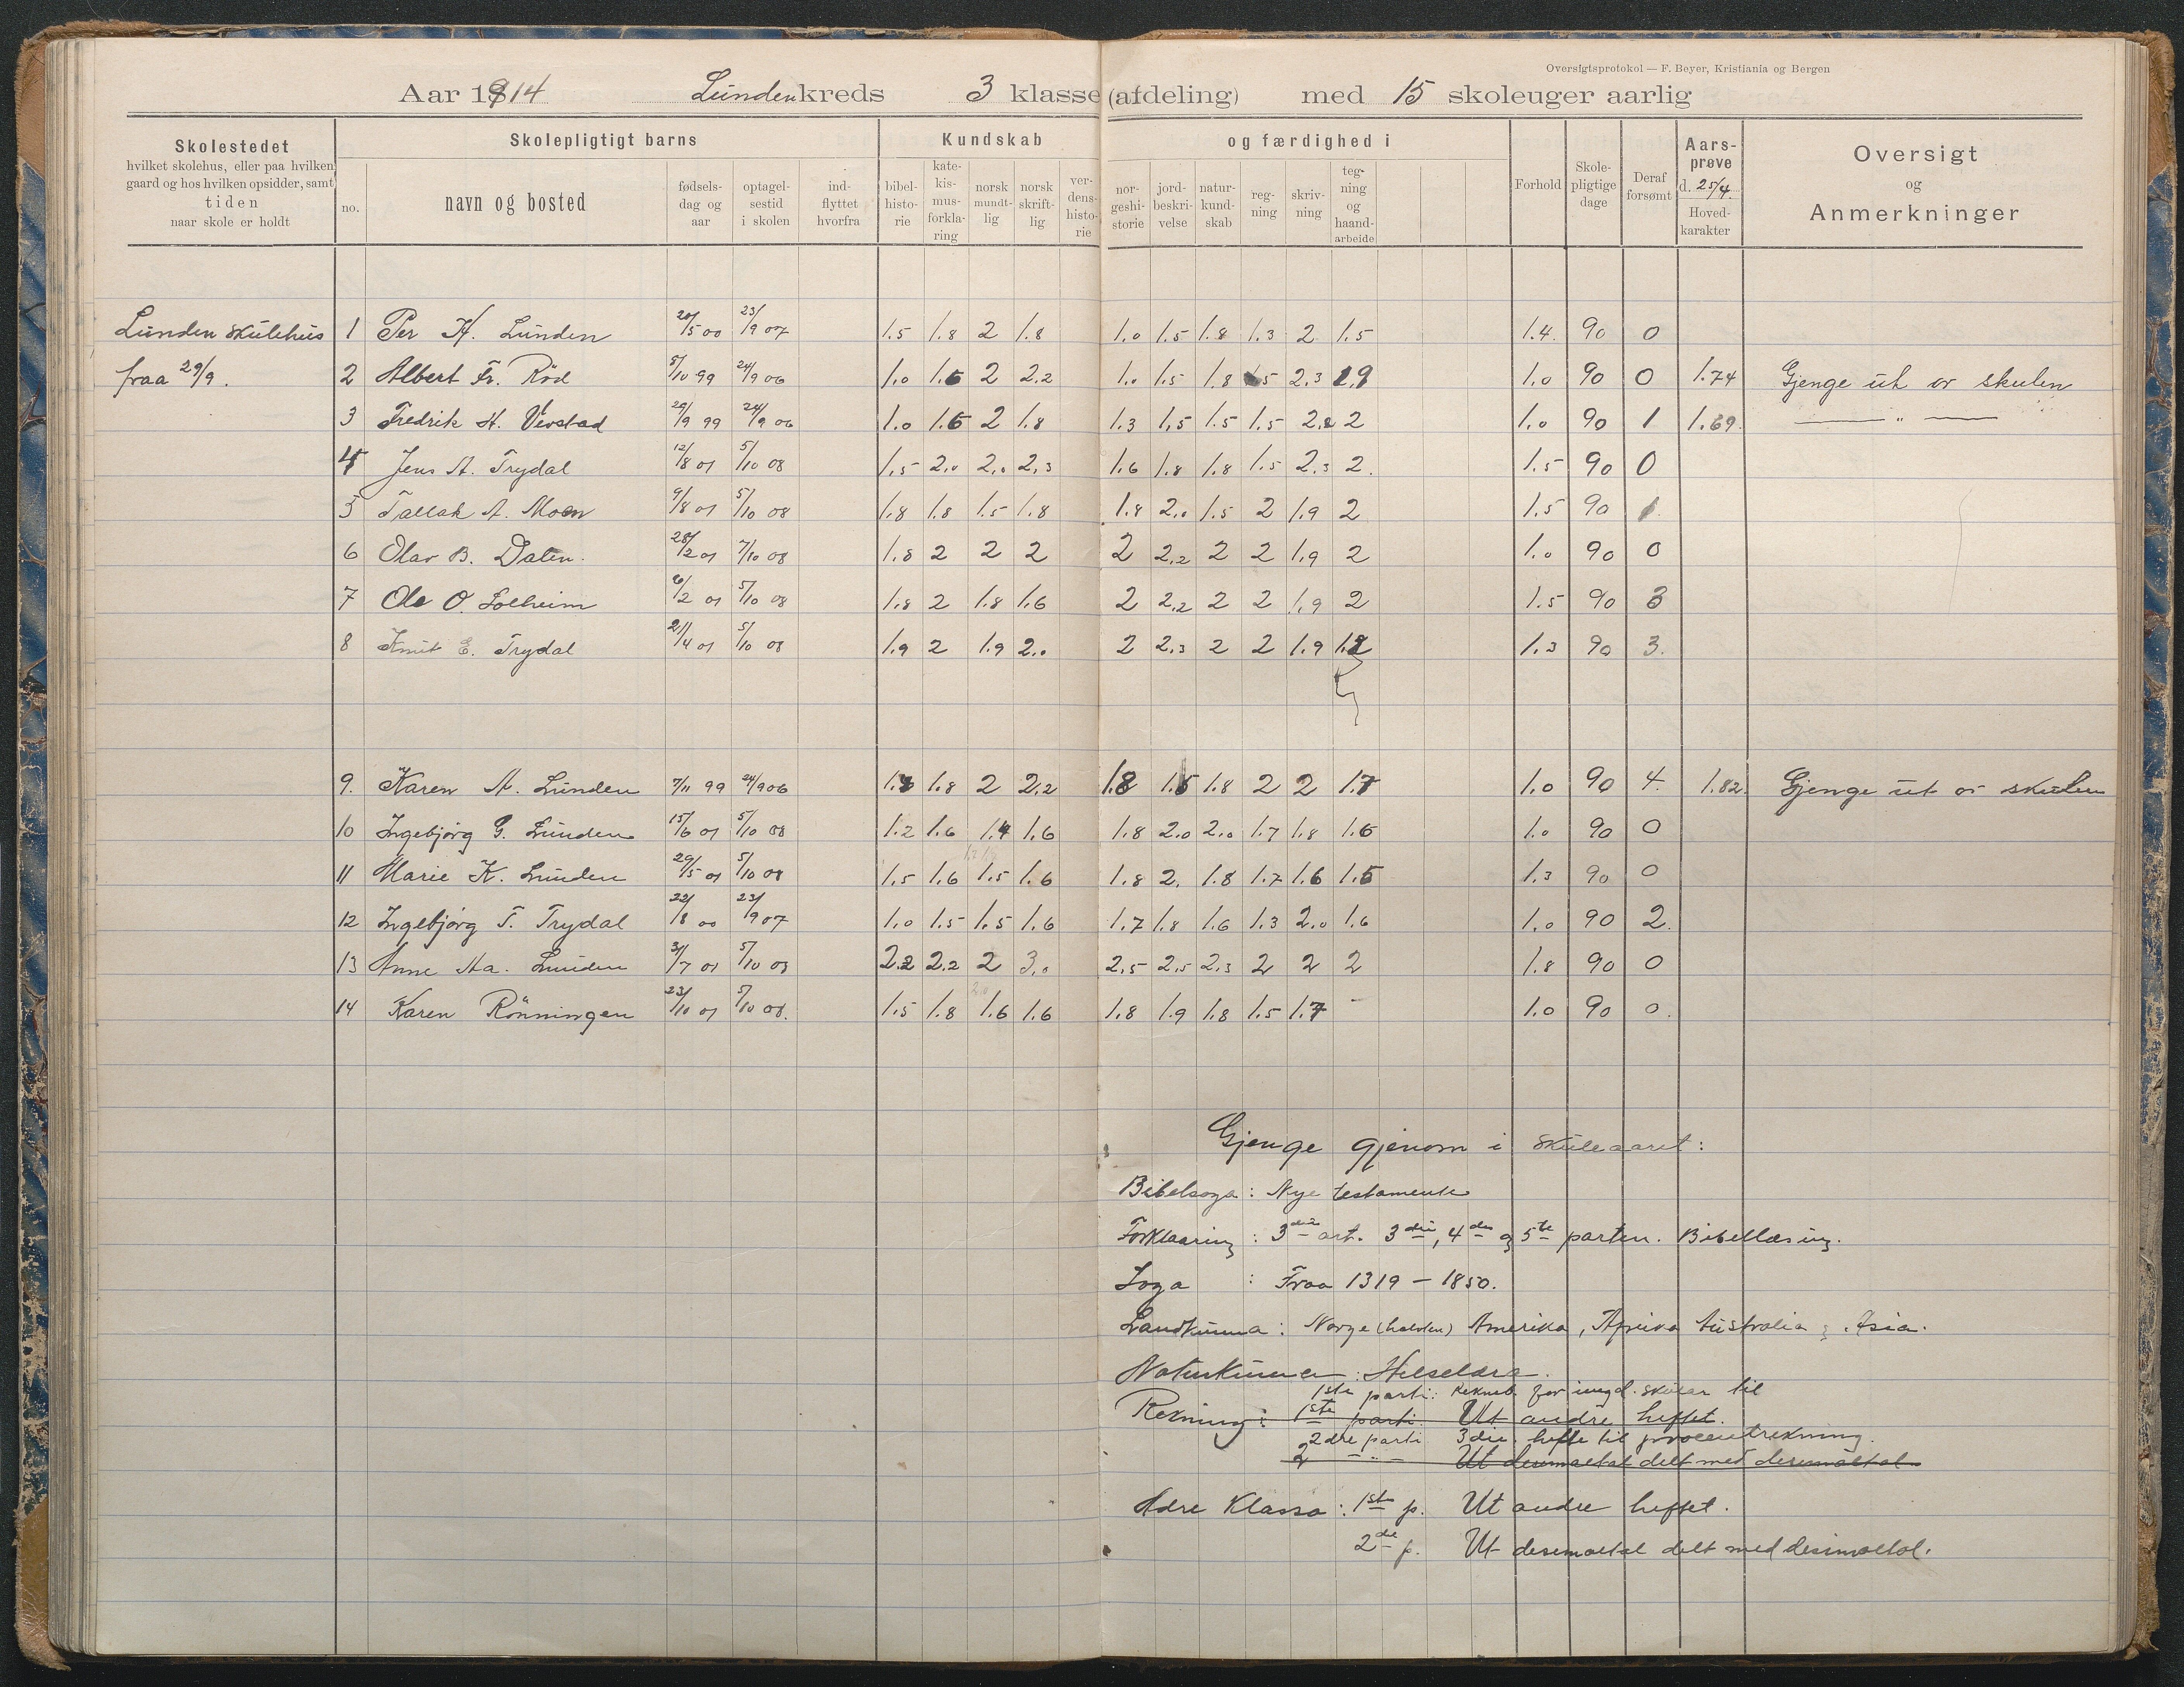 Oversigtsprotokol — F. Beyer, Kristiania og Bergen
Aar 1914 Lunden kreds 3 klasse (afdeling) med 15 skoleuger aarlig
Skolestedet hvilket skolehus, eller paa hvilken gaard og hos hvilken opsidder, samt tiden naar skole er holdt
Skolepligtigt barns
no. navn og bosted fødselsdag og aar optagelsestid i skolen indflyttet hvorfra
Kundskab og færdighed i
bibelhistorie katekismusforklaring norsk mundtlig norsk skriftlig verdenshistorie norgeshistorie jordbeskrivelse naturkundskab regning skrivning tegning og haandarbeide
Forhold Skolepligtige dage Deraf forsømt Aarsprøve d. 25/4. Hovedkarakter
Oversigt og Anmerkninger
Lunden skulehus 1 Per K. Lunden 20/5 00 23/9 07 1.5 1.8 2 1.8 1.0 1.5 1.8 1.3 2 1.5 1.4 90 0
fraa 29/9. 2 Albert Fr. Röd 5/10 99 24/9 06 1.0 1.5 2 2.2 1.0 1.5 1.8 1.5 2.3 1.9 1.0 90 0 1.74 Gjenge ut or skulen
3 Fredrik H. Vevstad 29/9 99 24/9 06 1.0 1.5 2 1.8 1.3 1.5 1.5 1.5 2.2 2 1.0 90 1 1.69. — " —
4 Jens A. Trydal 12/8 01 5/10 08 1.5 2.0 2.0 2.3 1.6 1.8 1.8 1.5 2.3 2. 1.5 90 0
5 Tallak A. Moen 9/8 01 5/10 08 1.8 1.8 1.5 1.8 1.8 2.0 1.5 2 1.9 2 1.5 90 1.
6 Olav B. Dalen. 28/2 01 7/10 08 1.8 2 2 2 2 2.2 2 2 1.9 2 1.0 90 0
7 Ole O. Solheim 6/2 01 5/10 08 1.8 2 1.8 1.6 2 2.2 2 2 1.9 2 1.5 90 3
8 Knut E. Trydal 21/4 01 5/10 08 1.9 2 1.9 2.0 2 2.3 2 2 1.9 1.8 1.3 90 3.
9. Karen A. Lunden 7/11 99 24/9 06 1.8 1.8 2 2.2 1.8 1.5 1.8 2 2 1.7 1.0 90 4. 1.82. Gjenge ut or skulen
10 Ingebjørg G. Lunden 15/6 01 5/10 08 1.2 1.6 1.4 1.6 1.8 2.0 2.0 1.7 1.8 1.5 1.0 90 0
11 Marie K. Lunden 29/5 01 5/10 08 1.5 1.6 1.5 1.6 1.8 2. 1.8 1.7 1.6 1.5 1.3 90 0
12 Ingebjørg T. Trydal 22/8 00 23/9 07 1.0 1.5 1.5 1.6 1.7 1.8 1.6 1.3 2.0 1.6 1.0 90 2.
13 Anne Aa. Lunden 3/7 01 5/10 08 2.2 2.2 2 3.0 2.5 2.5 2.3 2 2 2 1.8 90 0
14 Karen Rönningen 23/10 01 5/10 08. 1.5 1.8 1.6 1.6 1.8 1.9 1.8 1.5 1.7 - 1.0 90 0.
Gjenge gjenom i skuleaaret:
Bibelsoga: Nye testamente
Forklaaring: 3die art. 3die, 4de og 5te parten. Bibellæsing.
Soga : Fraa 1319 – 1850.
Landkunna: Norge (halvten) Amerika, Afrika Australia og Asia.
Naturkunna: Helselæra.
1ste parti: for ungd. skular til
Rekning: 1ste parti. Ut andre heftet.
2dre parti 3die hefte til procentrekning.
2 — " — Ut desimaltal delt med desimaltal
Adre Klassa: 1ste p. Ut andre heftet.
2de p. Ut desimaltal delt med desimaltal.